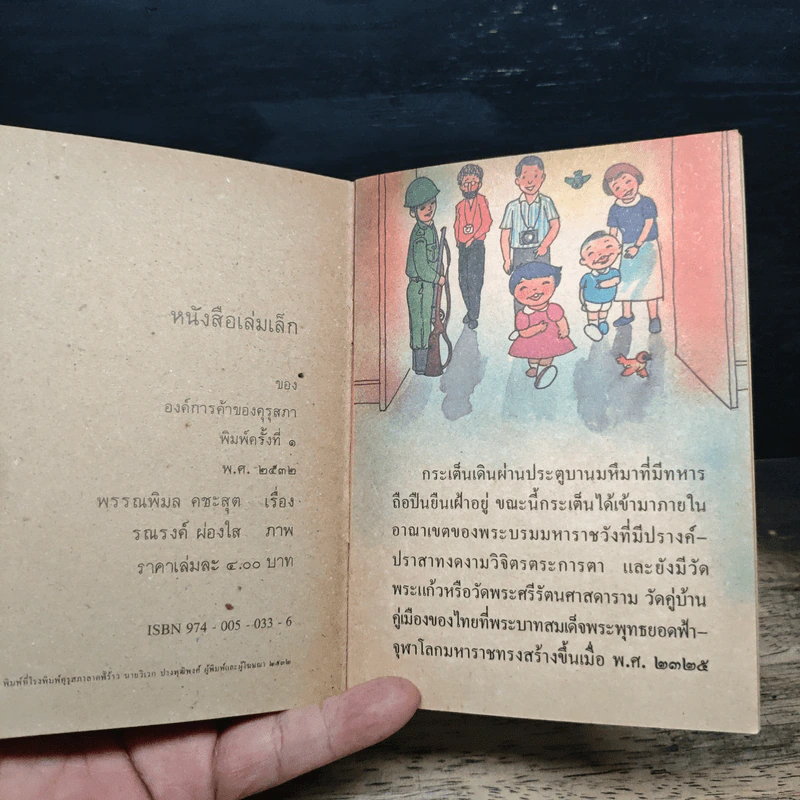 หนังสือเล่มเล็ก
ของ
องค์การค้าของคุรุสภา
พิมพ์ครั้งที่ ๑
พ.ศ. ๒๕๓๒
พรรณพิมล คชะสุต เรื่อง
รณรงค์ ผ่องใส ภาพ
ราคาเล่มละ ๔.๐๐ บาท
ISBN 974 - 005 - 033 - 6
พิมพ์ที่โรงพิมพ์คุรุสภาลาดพร้าว นายวิเวก ปางพุฒิพงศ์ ผู้พิมพ์และผู้โฆษณา ๒๕๓๒
กระเต็นเดินผ่านประตูบานมหึมาที่มีทหาร
ถือปืนยืนเฝ้าอยู่ ขณะนี้กระเต็นได้เข้ามาภายใน
อาณาเขตของพระบรมมหาราชวังที่มีปรางค์–
ปราสาทงดงามวิจิตรตระการตา และยังมีวัด
พระแก้วหรือวัดพระศรีรัตนศาสดาราม วัดคู่บ้าน
คู่เมืองของไทยที่พระบาทสมเด็จพระพุทธยอดฟ้า–
จุฬาโลกมหาราชทรงสร้างขึ้นเมื่อ พ.ศ. ๒๓๒๕